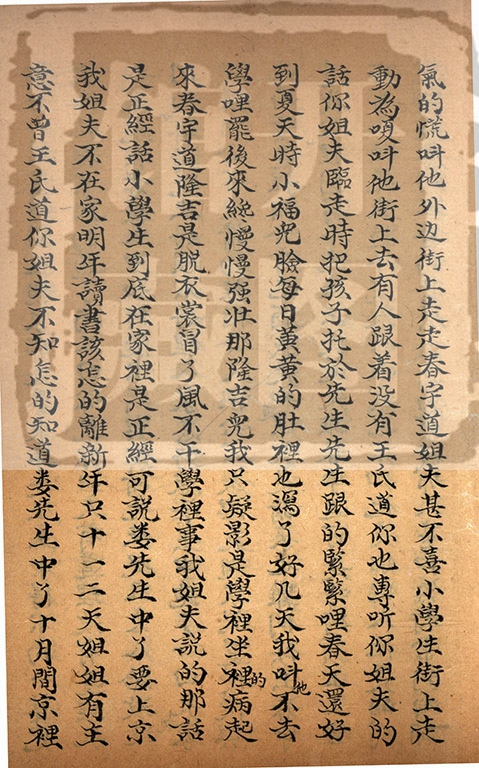 氣的慌呌他外边街上走走春宇道姐夫甚不喜小學生街上走
動為嗔呌他街上去有人跟着没有王氏道你也專听你姐夫的
話你姐夫臨走時把孩子托於先生先生跟的緊緊哩春天還好
到夏天時小福兒臉每日黄黄的肚裡也瀉了好几天我呌他不去
學哩罷後來纔慢慢强壮那隆吉兒我只疑影是學裡坐裡的病起
來春宇道隆吉是脱衣裳冒了風不干學裡事我姐夫説的那話
是正經話小學生到底在家裡是正經可説娄先生中了要上京
我姐夫不在家明年讀書該怎的離新年只十一二天姐姐有主
意不曽王氏道你姐夫不知怎的知道娄先生中了十月間京裡